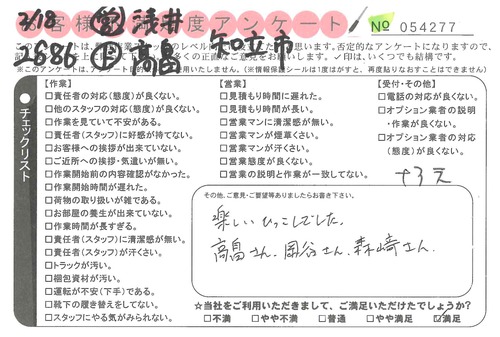 2/18 営 浅井
お客様満足度アンケート
No 054277
2686 F 高畠 知立市
ません。(※情報保護シールは1度はがすと、再度貼りなおすことはできません)
チェックリスト
【作業】
□責任者の対応(態度)が良くない。
□他のスタッフの対応(態度)が良くない。
□作業を見ていて不安がある。
□責任者(スタッフ)に好感が持てない。
□お客様への挨拶が出来ていない。
□ご近所への挨拶・気遣いが無い。
□作業開始前の内容確認がなかった。
□作業開始時間が遅れた。
□荷物の取り扱いが雑である。
□お部屋の養生が出来ていない。
□作業時間が長すぎる。
□責任者(スタッフ)に清潔感が無い。
□責任者(スタッフ)が汗くさい。
□トラックが汚い。
□梱包資材が汚い。
□運転が不安(下手)である。
□靴下の履き替えをしてない。
□スタッフにやる気がみられない。
【営業】
□見積もり時間に遅れた。
□見積もり時間が長い。
□営業マンに清潔感が無い。
□営業マンが煙草くさい。
□営業マンが汗くさい。
□営業態度が良くない。
□営業の説明と作業が一致してない。
【受付・その他】
□電話の対応が良くない。
□オプション業者の説明
・作業が良くない。
□オプション業者の対応
(態度)が良くない。
その他、ご意見・ご要望等ありましたらお書き下さい。
楽しいひっこしでした。
高畠さん、岡谷さん、森崎さん。
☆当社をご利用いただきまして、ご満足いただけたでしょうか?
□不満 □やや不満 □普通 □やや満足 ☑満足